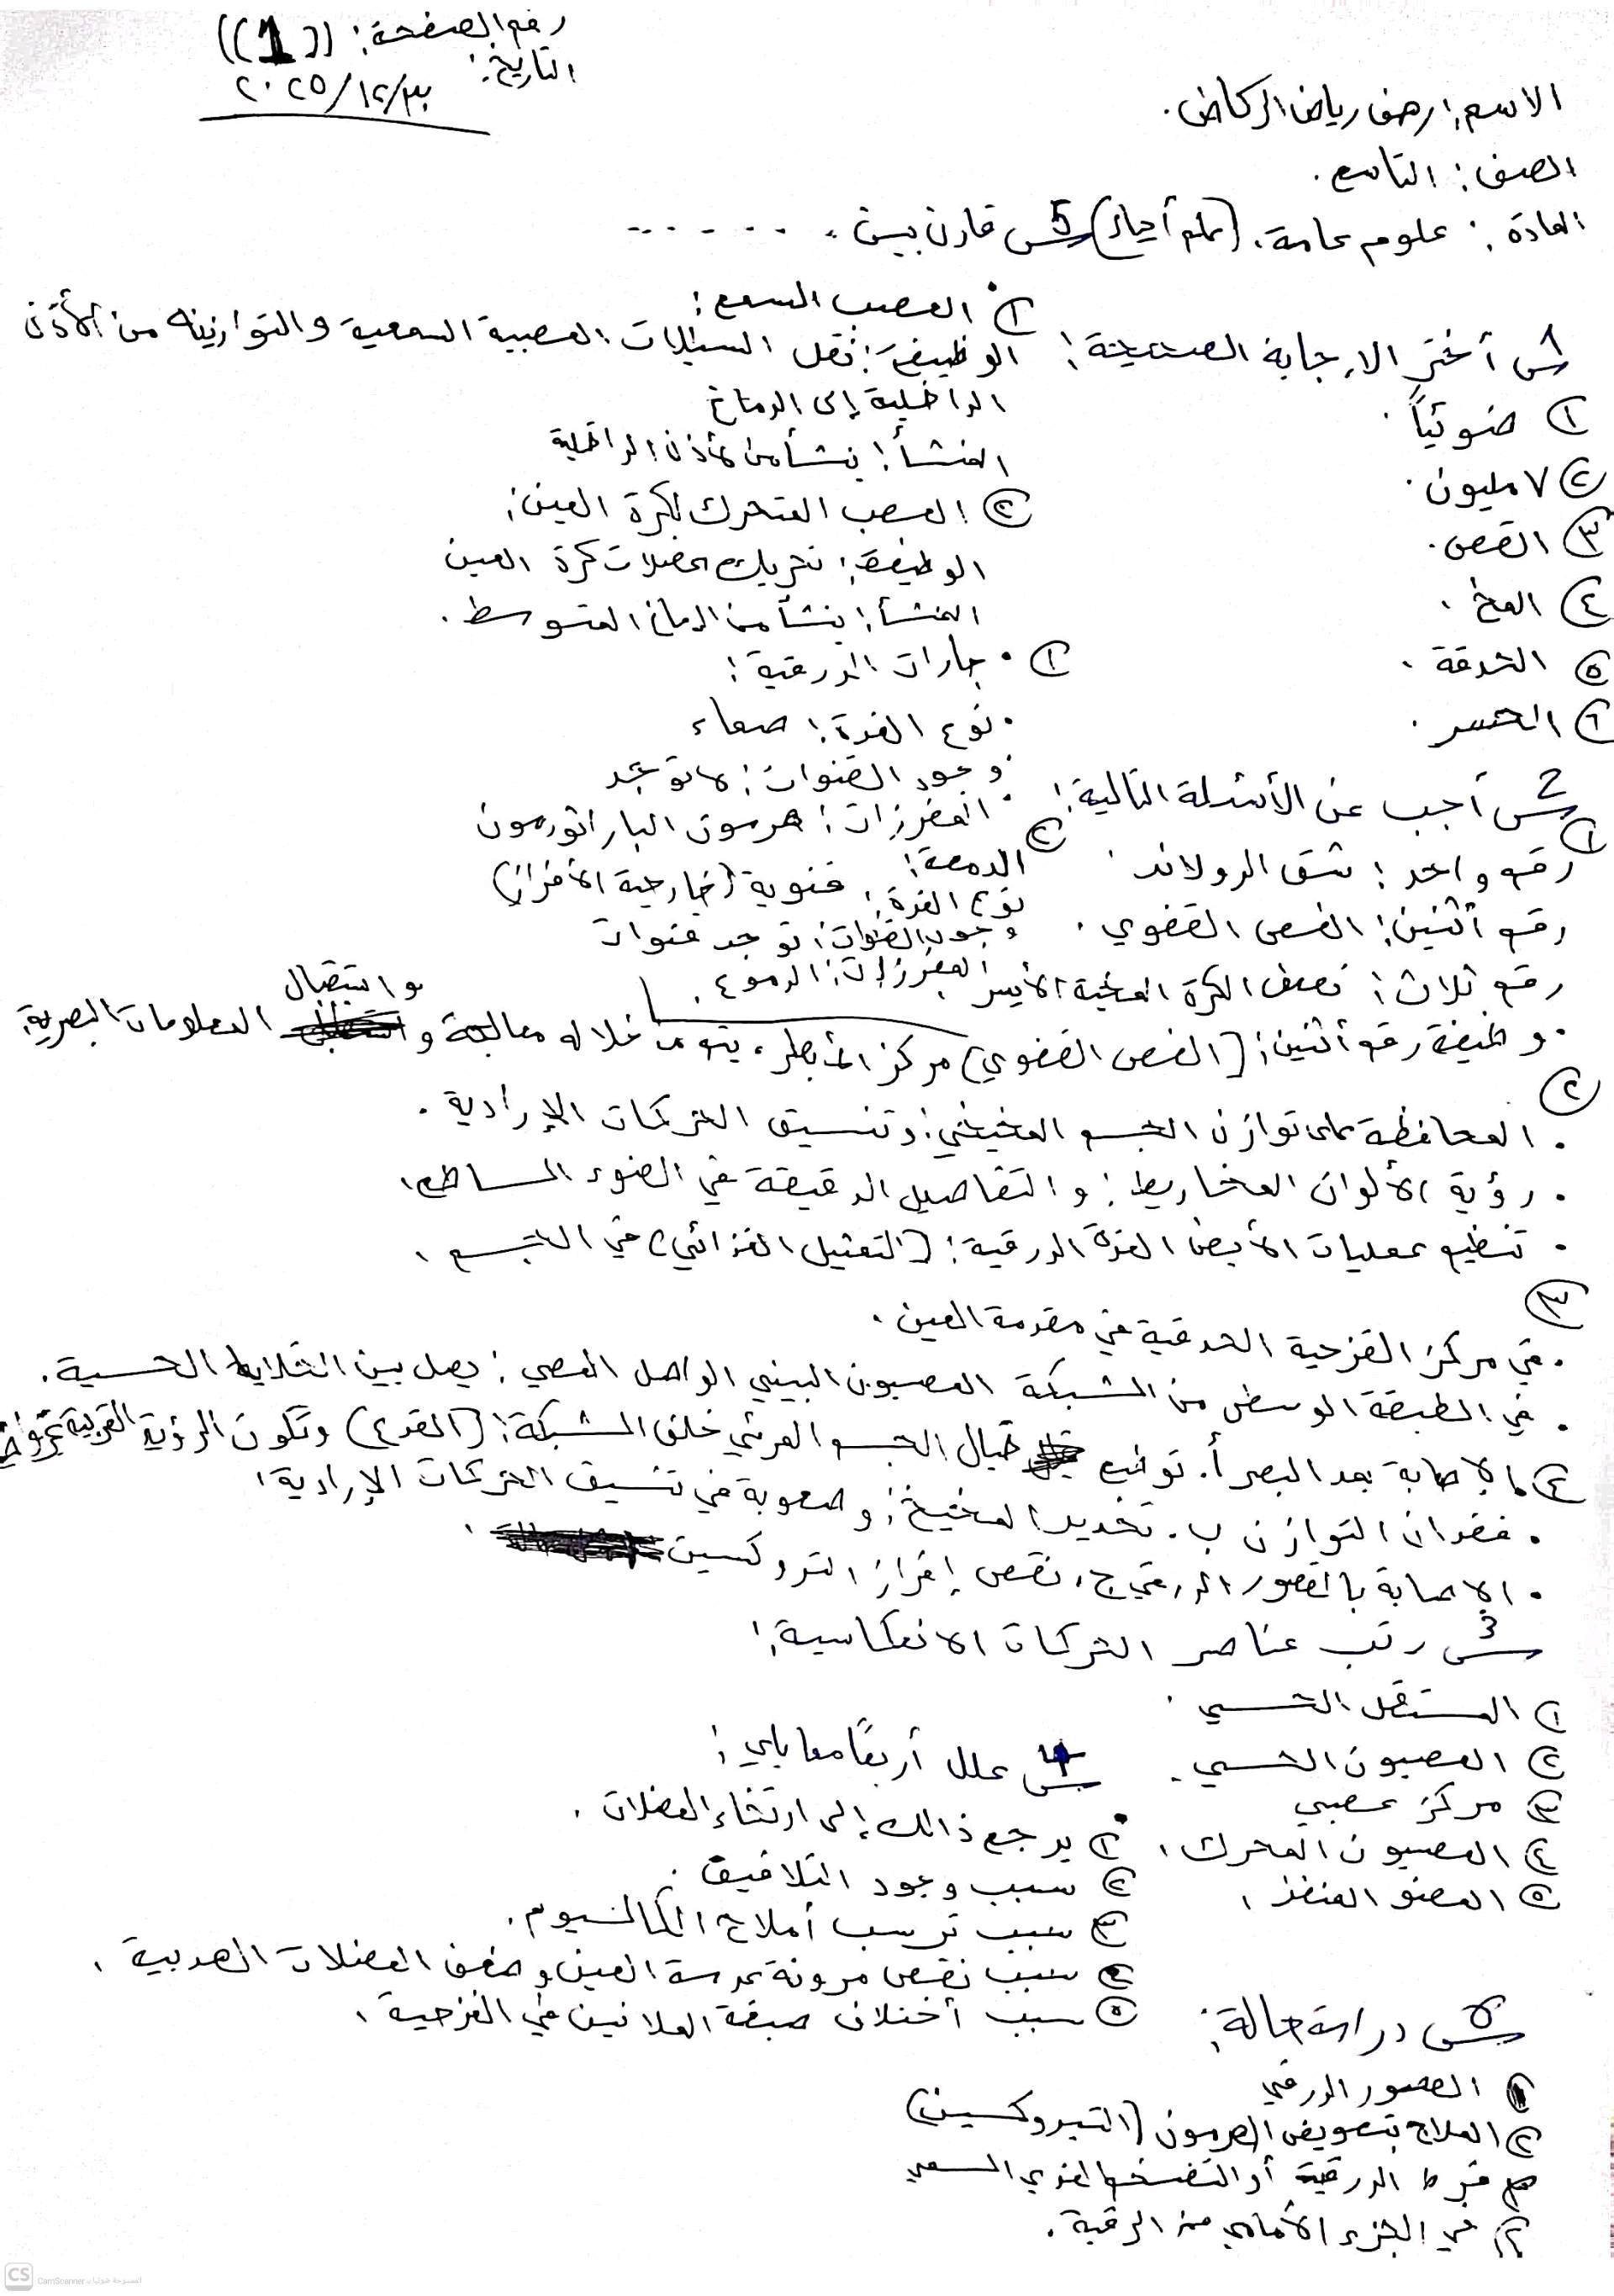 رقم الصفحة: ((1))
التاريخ: ٢٠٢٥/١٢/٣٠
الاسم: رهف رياض الركاض.
الصف: التاسع.
المادة: علوم عامة. (علم أحياء)
س5 قارن بين. . . . . .
س1 أختر الإجابة الصحيحة:
① ضوئياً.
② ٧ مليون.
③ القصص.
④ المخ.
⑤ الحدقة.
⑥ الحسر.
① العصب السمع:
الوظيفة: نقل السيالات العصبية السمعية والتوازنية من الأذن
الداخلية إلى الدماغ
المنشأ: ينشأ من الأذن الداخلية
② العصب المتحرك لكرة العين:
الوظيفة: تحريك عضلات كرة العين
المنشأ: ينشأ من الدماغ المتوسط.
① . جارات الدرقية:
. نوع الغدة: صماء
. وجود القنوات: لا توجد
. المفرزات: هرمون الباراثورمون
② الدمعة:
نوع الغدة: قنوية (خارجية الأفراز)
وجود القنوات: توجد قنوات
المفرزات: الدموع.
س2 أجب عن الأسئلة التالية:
① رقم واحد: شق الرولاند.
رقم أثنين: الفص القفوي.
رقم ثلاث: نصف الكرة المخية الأيسر
. وظيفة رقم أثنين: (الفص القفوي) مركز الأبصار، يتم من خلاله معالجة و واستقبال المعلومات البصرية.
②
. المحافظة على توازن الجسم المخيخي: وتنسيق الحركات الإرادية.
. رؤية الألوان المخاريط: والتفاصيل الدقيقة في الضوء الساطع.
. تنظيم عمليات الأيض الغدة الدرقية: (التمثيل الغذائي) في الجسم.
③
. في مركز القزحية الحدقية في مقدمة العين.
. في الطبقة الوسطى من الشبكة العصبون البيني الواصل العصبي: يصل بين الخلايا الحسية.
④ . الإصابة بمد البصر أ. توضع خيال الجسم المرئي خلف الشبكة: (القدع) وتكون الرؤية القريبة
. فقدان التوازن ب. تخديد المخيخ: وصعوبة في تنسيق الحركات الإرادية.
. الإصابة بالقصور الدرقي ج. نقص إفراز التروكسين.
س3 رتب عناصر الحركات الانعكاسية:
① المستقل الحسي.
② العصبون الحسي.
③ مركز عصبي
④ العصبون المحرك.
⑤ العضو المنفذ.
س4 علل أربعًا مما يلي:
① يرجع ذالك إلى ارتخاء العضلات.
② سبب وجود التلافيف.
③ سبب ترسب أملاح الكالسيوم.
④ سبب نقص مرونة عدسة العين وضعف العضلات الهدبية.
⑤ سبب أختلاف صبغة الملانين في القزحية.
س5 دراسة حالة:
① القصور الدرقي
② العلاج بتعويض الهرمون (التيروكسين)
③ فرط الدرقية أو التضخم الغدي السمي
④ في الجزء الأمامي من الرقبة.
CS
الممسوحة ضوئيا بـ CamScanner